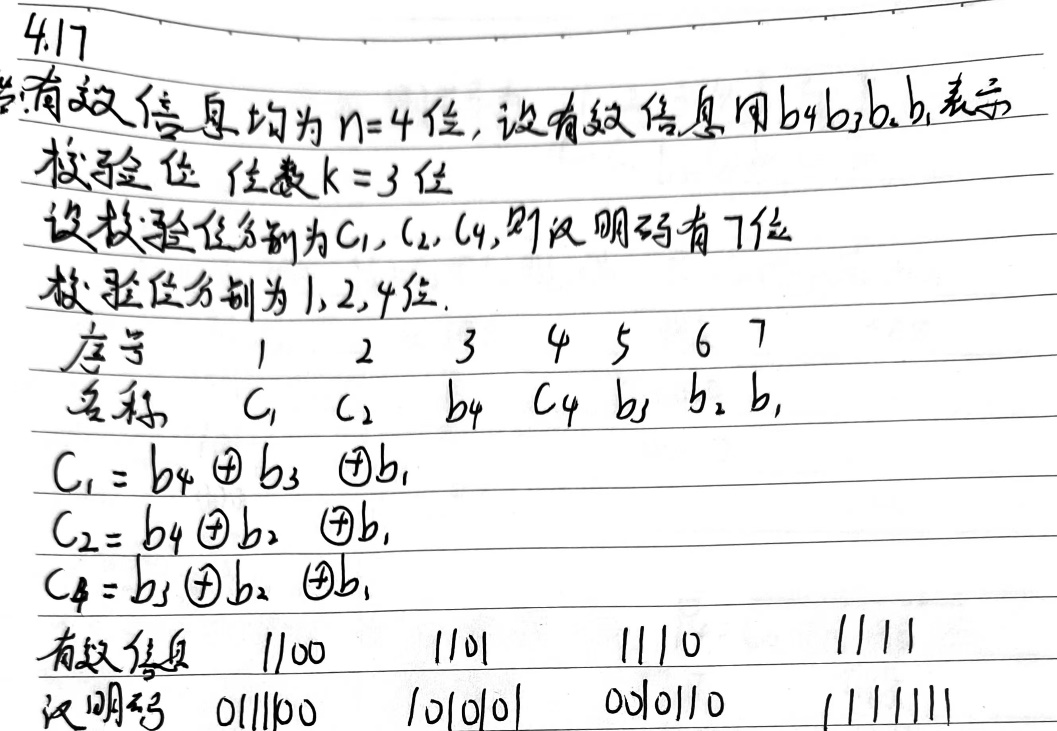 4.17
答:有效信息均为n=4位,设有效信息用b4b3b2b1表示
校验位 位数k=3位
设校验位分别为C1,C2,C4,则汉明码有7位
校验位分别为1,2,4位.
序号 1 2 3 4 5 6 7
名称 C1 C2 b4 C4 b3 b2 b1
C1=b4⊕b3 ⊕b1
C2=b4⊕b2 ⊕b1
C4=b3⊕b2 ⊕b1
有效信息 1100 1101 1110 1111
汉明码 0111100 1010101 0010110 1111111